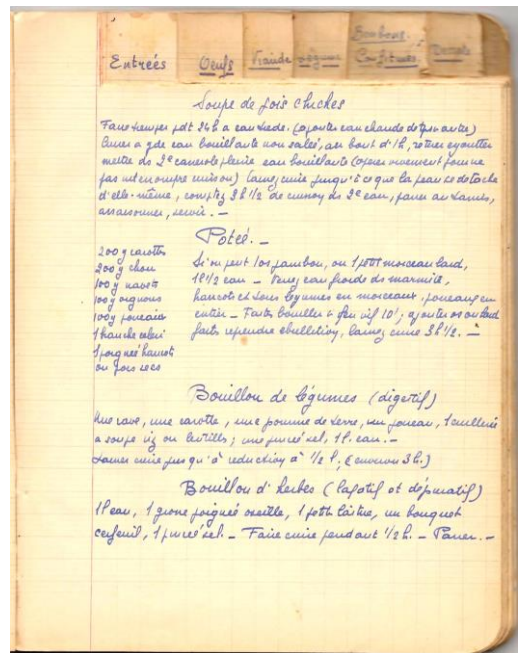 Entrées Oeufs Viande Légume Bonbons. Confitures. Desserts
Soupe de pois chiches
Faire tremper pdt 24h à eau tiède. (ajouter eau chaude de tps en autre)
Cuire à gde eau bouillante non salée, au bout d'1h, retirer égoutter
mettre ds 2e casserole pleine eau bouillante (opérer vivement pour ne
pas interrompre cuisson) laissez cuire jusqu'à ce que la peau se détache
d'elle-même, comptez 3h 1/2 de cuisson ds 2e eau, passer au tamis,
assaisonner, servir. —
Potée. —
200 g carottes
200 g chou
100 g navets
100 g oignons
100 g poireaux
1 branche céleri
1 poignée haricots
ou pois secs
Si on peut 1 os jambon, ou 1 petit morceau lard,
1l 1/2 eau — Versez eau froide ds marmite,
haricots et tous légumes en morceaux, poireaux en
entier — Faites bouillir à feu vif 10', ajouter os ou lard
faites reprendre ébullition, laissez cuire 3h 1/2. —
Bouillon de légumes (digestif)
Une rave, une carotte, une pomme de terre, un poireau, 1 cuillerée
à soupe riz ou lentilles ; une pincée sel, 1 l. eau. —
Laisser cuire jusqu'à réduction à 1/2 l. (environ 3h.)
Bouillon d'herbes (laxatif et dépuratif)
1l eau, 1 grosse poignée oseille, 1 petite laitue, un bouquet
cerfeuil, 1 pincée sel. — Faire cuire pendant 1/2 h. — Passer. —